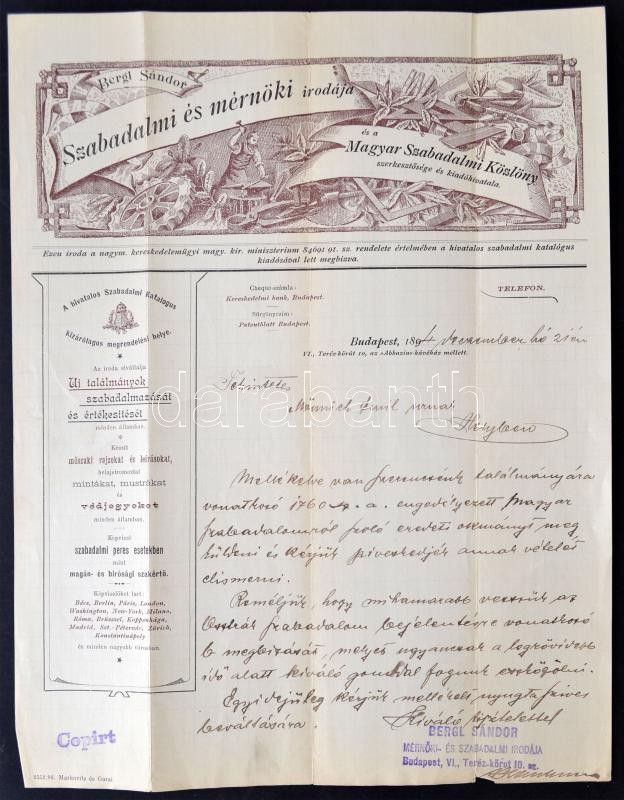 Bergl Sándor
Szabadalmi és mérnöki irodája
és a
Magyar Szabadalmi Közlöny
szerkesztősége és kiadóhivatala.
Ezen iroda a nagym. kereskedelemügyi magy. kir. miniszterium 84691/91. sz. rendelete értelmében a hivatalos szabadalmi katalógus
kiadásával lett megbizva.
A hivatalos Szabadalmi Katalogus
kizárólagos megrendelési helye.
Az iroda elvállalja
Uj találmányok
szabadalmazását
és értékesitését
minden államban.
Készit
műszaki rajzokat és leirásokat,
belajstromoztat
mintákat, mustrákat
és
védjegyeket
minden államban.
Képvisel
szabadalmi peres esetekben
mint
magán- és birósági szakértő.
Képviselőket tart:
Bécs, Berlin, Páris, London,
Washington, New-York, Milano,
Róma, Brüssel, Koppenhága,
Madrid, Szt.-Pétervár, Zürich,
Konstantinápoly
és minden nagyobb városban.
Cheque-számla:
Kereskedelmi bank, Budapest.
Sürgönyczim:
Patentblatt Budapest.
TELEFON.
Budapest, 1894 deczember hó 21én
VI., Teréz-körut 10, az »Abbazia«-kávéház mellett.
Tekintetes
Münnich Emil urnak
Mellékelve van szerencsénk találmányára
vonatkozó 1760 a. engedélyezett magyar
szabadalomról szóló eredeti okmányt meg
küldeni és kérjük sziveskedjék annak vételét
elismerni.
Reméljük, hogy mihamarabb vesszük az
Osztrák szabadalom bejelentésre vonatkozó
b. megbizását, melyet ugyancsak a legrövidebb
idő alatt kiváló gonddal fogunk eszközölni.
Egyidejüleg kérjük mellékelt nyugta szives
beváltására.
Kiváló tisztelettel
BERGL SÁNDOR
MÉRNÖKI- ÉS SZABADALMI IRODÁJA
Budapest, VI., Teréz-körut 10. sz.
Copirt
Markovits és Garai
darabanth